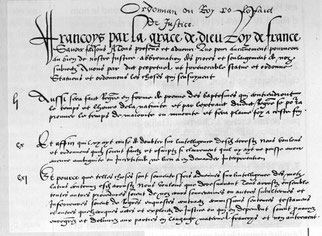 De Justice.
Francoys par la grace de dieu Roy de france
Scavoir faisons A tous presens et advenir Que pour aucunement pourveoir
au bien de nostre Justice abbreviation des proces et soulagement de noz
subiectz Avons par edit perpetuel et irrevocable statue et ordonne
Statuons et ordonnons les choses qui sensuyvent
li Aussi sera fait registre en forme de preuve des baptesmes qui contiendront
le temps et lheure de la nativite et par lextraict dudit registre se pourra
prouver le temps de maiorite ou minorite et fera pleine foy a ceste fin
cx Et affin quil ny ayt cause de doubter sur lintelligence desdits arrestz Nous voulons
et ordonnons quilz soient faictz et escriptz si clairement quil ny ayt ne puisse avoir
aucune ambiguite ou Incertitude ne lieu a en demander interpretation
cxi Et pource que telles choses sont souventesfois advenues sur lintelligence des motz
latins contenuz esdits arrestz Nous voulons que doresnavant tous arrestz ensemble
toutes autres procedures soient de noz cours souveraines ou autres subalternes et
inferieures soient de registres enquestes contractz commissions sentences testamens
et autres quelzconques actes et exploictz de Justice ou qui en dependent soient prononcez
enregistrez et delivrez aux parties en langage maternel francoys et non autrement